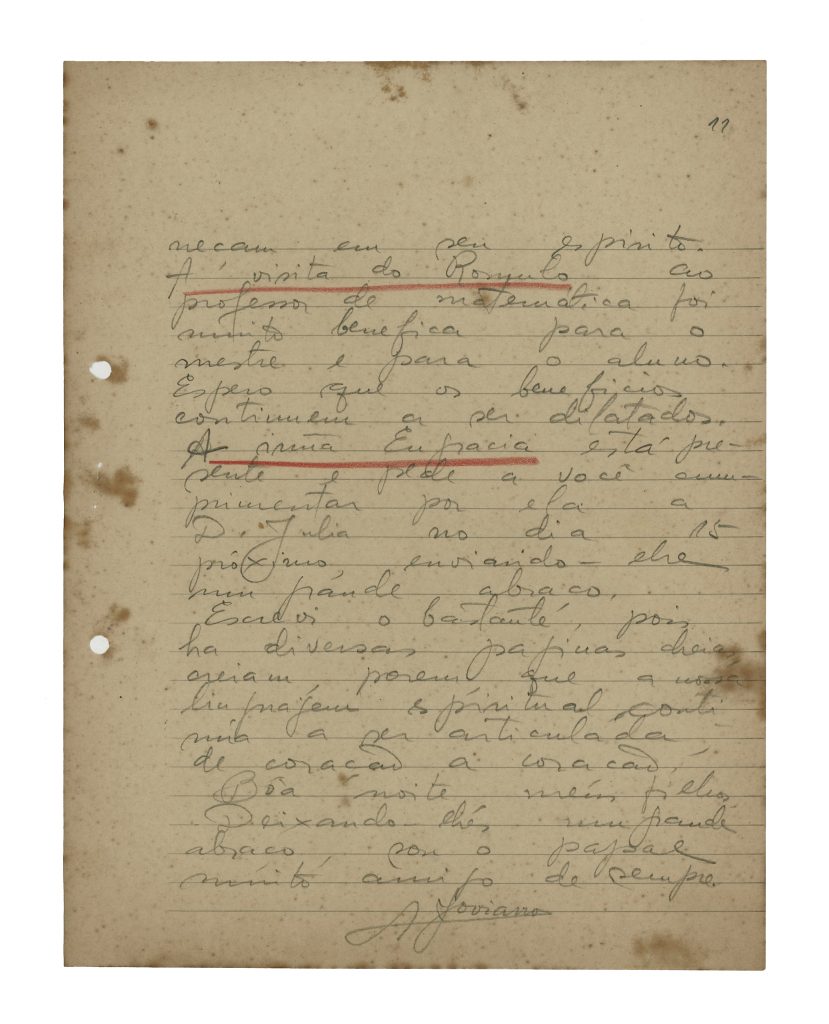 11
necam em seu espirito.
A visita do Romulo ao
professor de matematica foi
muito benefica para o
mestre e para o aluno.
Espero que os beneficios
continuem a ser dilatados.
A irmã Engracia está pre-
sente e pede a você cum-
primentar por ela a
D. Julia no dia 15
próximo, enviando-lhe
um grande abraço.
Escrevi o bastante, pois
ha diversas paginas cheias,
creiam, porem que a nossa
linguagem espiritual conti
núa a ser articulada
de coração a coração.
Bôa noite meus filhos
Deixando-lhes um grande
abraço, sou o papae
muito amigo de sempre.
A Joviano